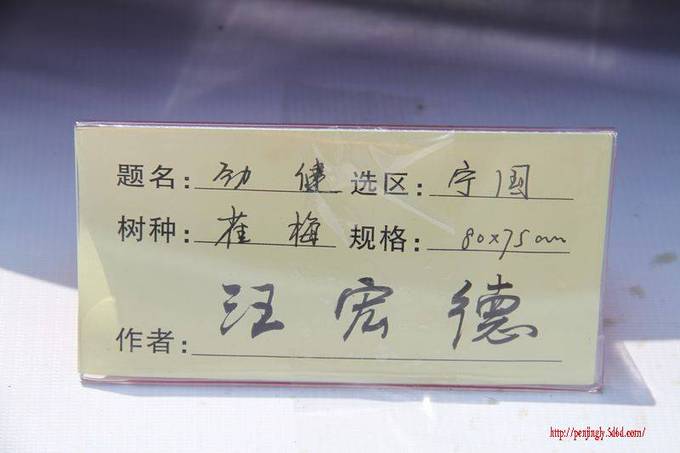 题名: 劲健 选区: 宁国
树种: 雀梅 规格: 80x75cm
作者: 汪宏德
http://penjingly.5d6d.com/